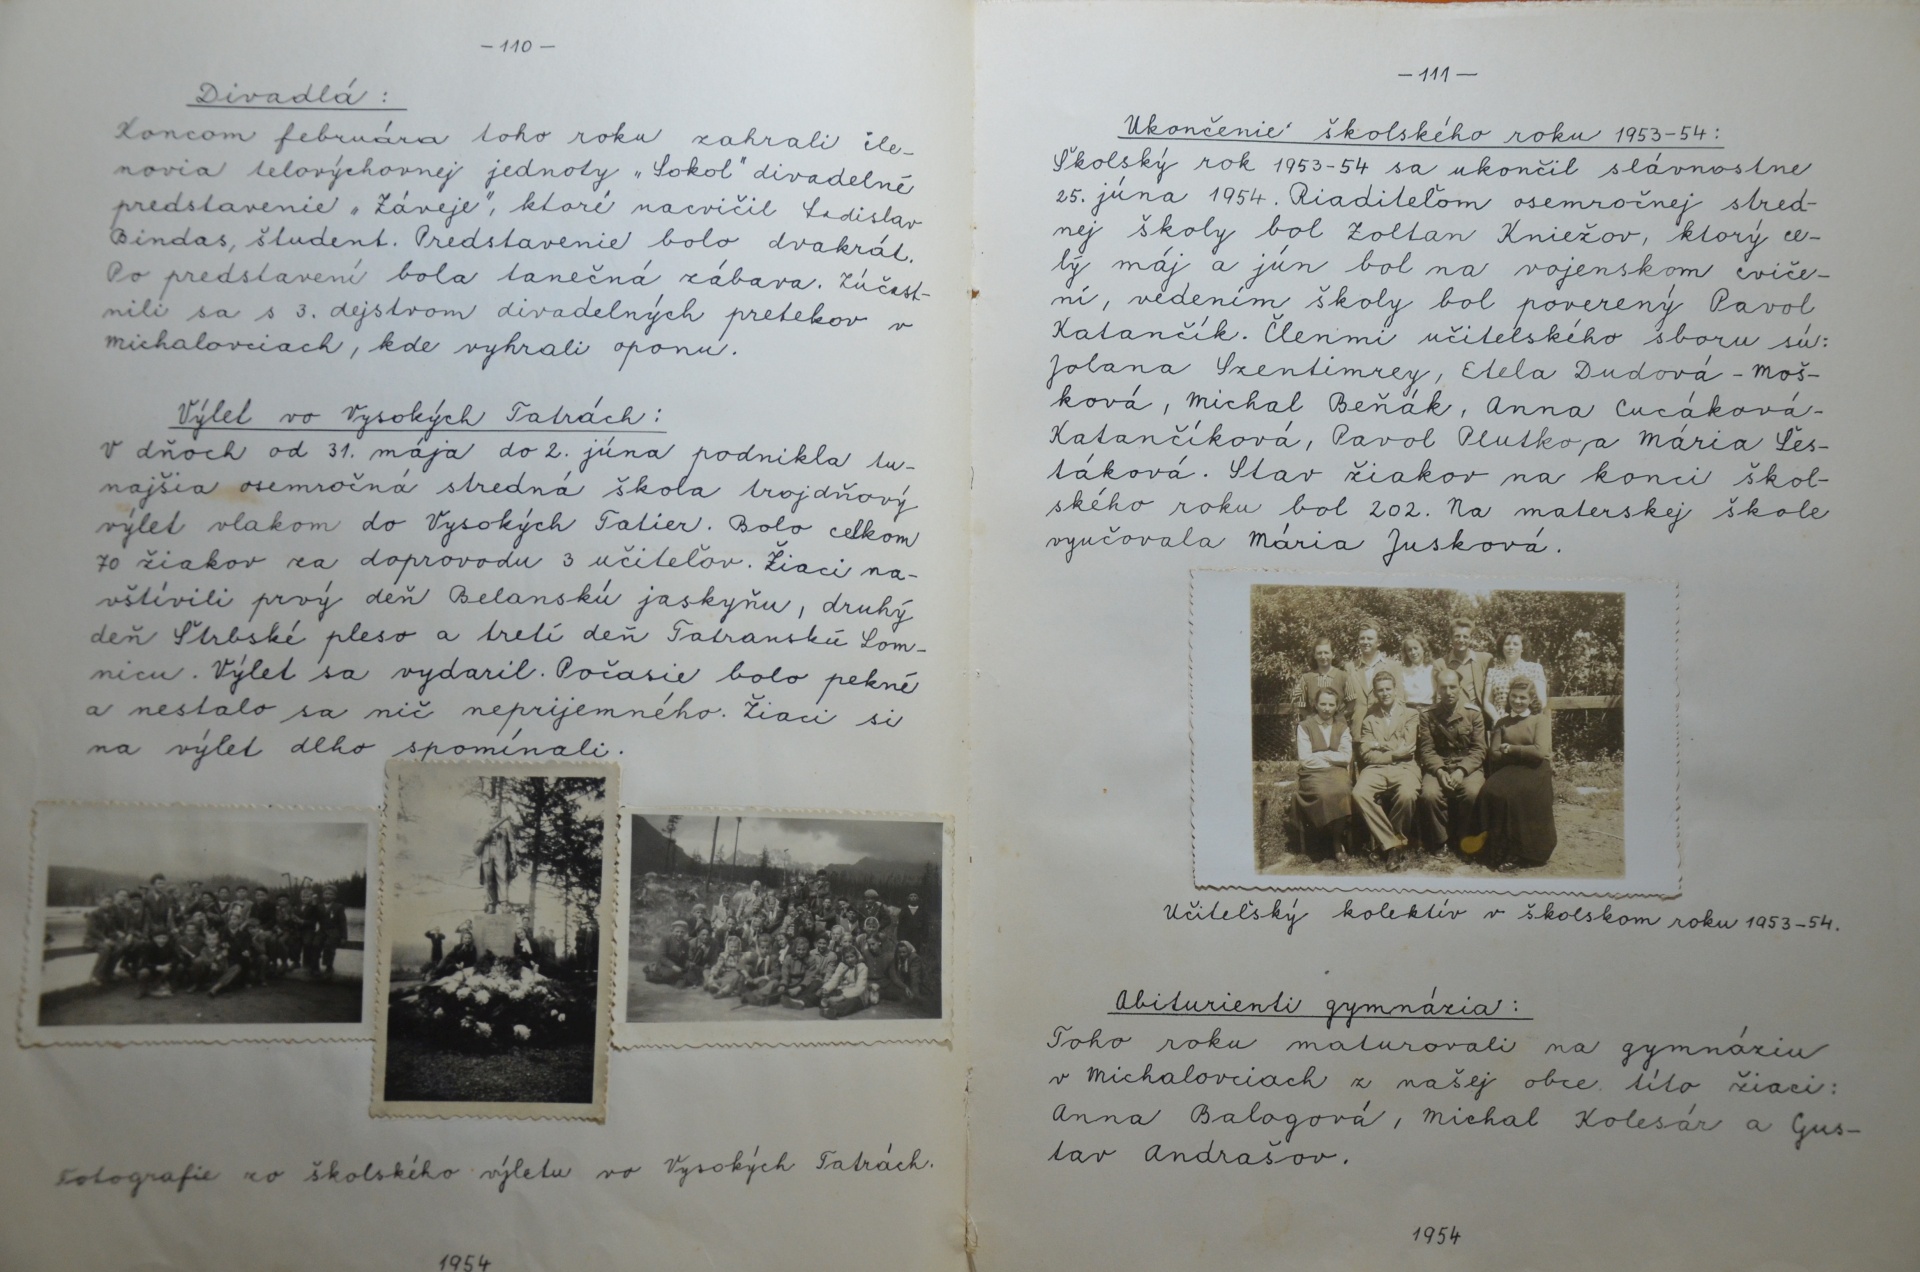 -110-
Divadlá:
Koncom februára toho roku zahrali čle-
novia telovýchovnej jednoty „Sokol" divadelné
predstavenie „Záveje", ktoré nacvičil Ladislav
Bindas, študent. Predstavenie bolo dvakrát.
Po predstavení bola tanečná zábava. Zúčast-
nili sa s 3. dejstvom divadelných pretekov v
Michalovciach, kde vyhrali oponu.
Výlet vo Vysokých Tatrách:
V dňoch od 31. mája do 2. júna podnikla tu-
najšia osemročná stredná škola trojdňový
výlet vlakom do Vysokých Tatier. Bolo celkom
70 žiakov za doprovodu 3 učiteľov. Žiaci na-
vštívili prvý deň Belanskú jaskyňu, druhý
deň Štrbské pleso a tretí deň Tatranskú Lom-
nicu. Výlet sa vydaril. Počasie bolo pekné
a nestalo sa nič neprijemného. Žiaci si
na výlet dlho spomínali.
Fotografie zo školského výletu vo Vysokých Tatrách.
1954
-111-
Ukončenie školského roku 1953-54:
Školský rok 1953-54 sa ukončil slávnostne
25. júna 1954. Riaditeľom osemročnej stred-
nej školy bol Zoltan Kniežov, ktorý ce-
lý máj a jún bol na vojenskom cviče-
ní, vedením školy bol poverený Pavol
Katančík. Členmi učiteľského sboru sú:
Jolana Szentimrey, Etela Dudová-Moš-
ková, Michal Beňák, Anna Cucáková-
Katančíková, Pavol Plutko, a Mária Šes-
táková. Stav žiakov na konci škol-
ského roku bol 202. Na materskej škole
vyučovala Mária Jusková.
Učiteľský kolektív v školskom roku 1953-54.
Abiturienti gymnázia:
Toho roku maturovali na gymnáziu
v Michalovciach z našej obce títo žiaci:
Anna Balogová, Michal Kolesár a Gus-
tav Andrašov.
1954